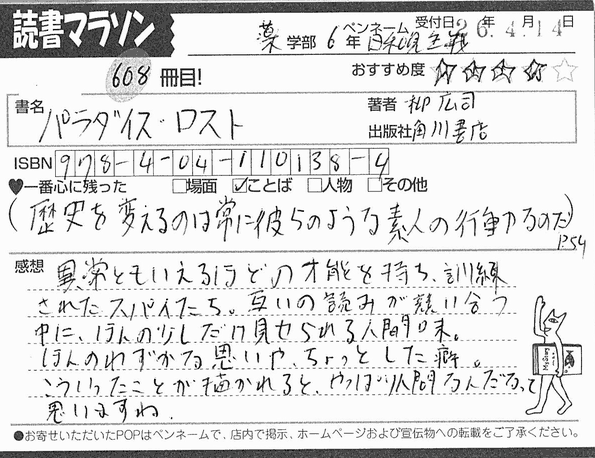 読書マラソン
薬学部 6年 ペンネーム 自己完主義 受付日26年4月14日
608冊目!
おすすめ度 ★★★★☆
書名 パラダイス・ロスト
著者 柳 広司
出版社 角川書店
ISBN 978-4-04-110138-4
♥一番心に残った □場面 ☑ことば □人物 □その他
(歴史を変えるのは常に彼らのような素人の行動力なのだ)
P.54
感想 異常ともいえるほどの才能を持ち、訓練
されたスパイたち。互いの読みが競い合う
中に、ほんの少しだけ見せられる人間味。
ほんのわずかな思いや、ちょっとした癖。
こういったことが描かれると、やっぱり人間なんだなって
思いますね。
●お寄せいただいたPOPはペンネームで、店内で掲示、ホームページおよび宣伝物への転載をご了承ください。